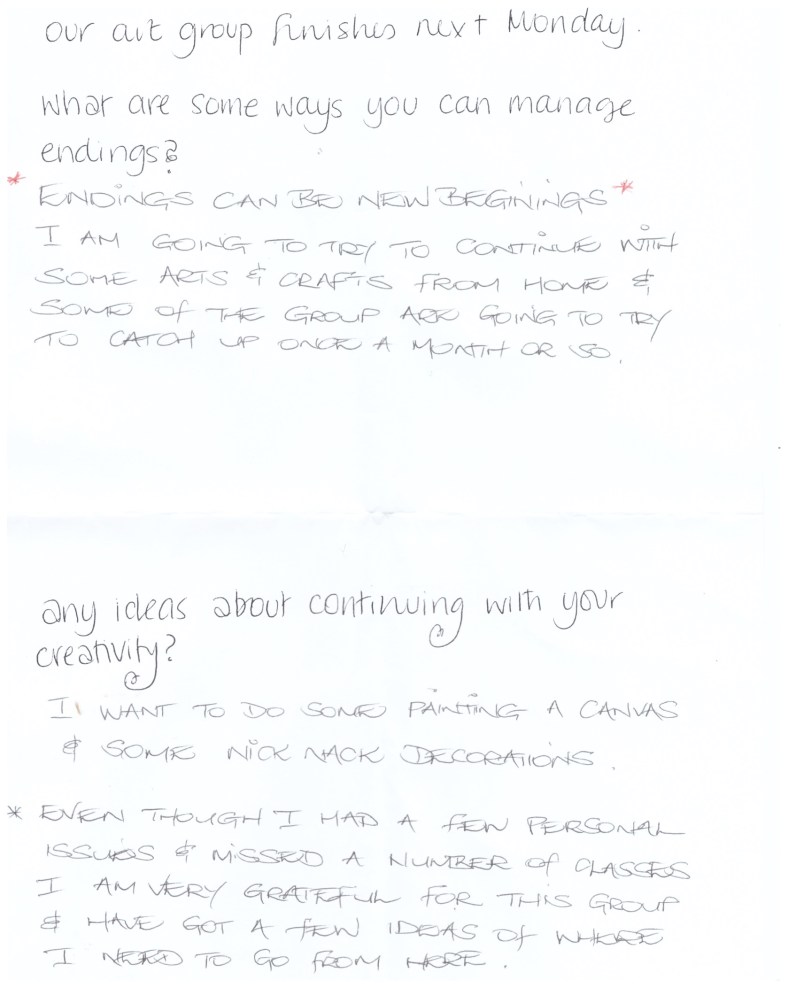 our art group finishes next Monday.
what are some ways you can manage
endings?
* ENDINGS CAN BE NEW BEGININGS *
I AM GOING TO TRY TO CONTINUE WITH
SOME ARTS & CRAFTS FROM HOME &
SOME OF THE GROUP ARE GOING TO TRY
TO CATCH UP ONCE A MONTH OR SO.
any ideas about continuing with your
creativity?
I WANT TO DO SOME PAINTING A CANVAS
& SOME NICK NACK DECORATIONS.
* EVEN THOUGH I HAD A FEW PERSONAL
ISSUES & MISSED A NUMBER OF CLASSES
I AM VERY GRATEFUL FOR THIS GROUP
& HAVE GOT A FEW IDEAS OF WHERE
I NEED TO GO FROM HERE.